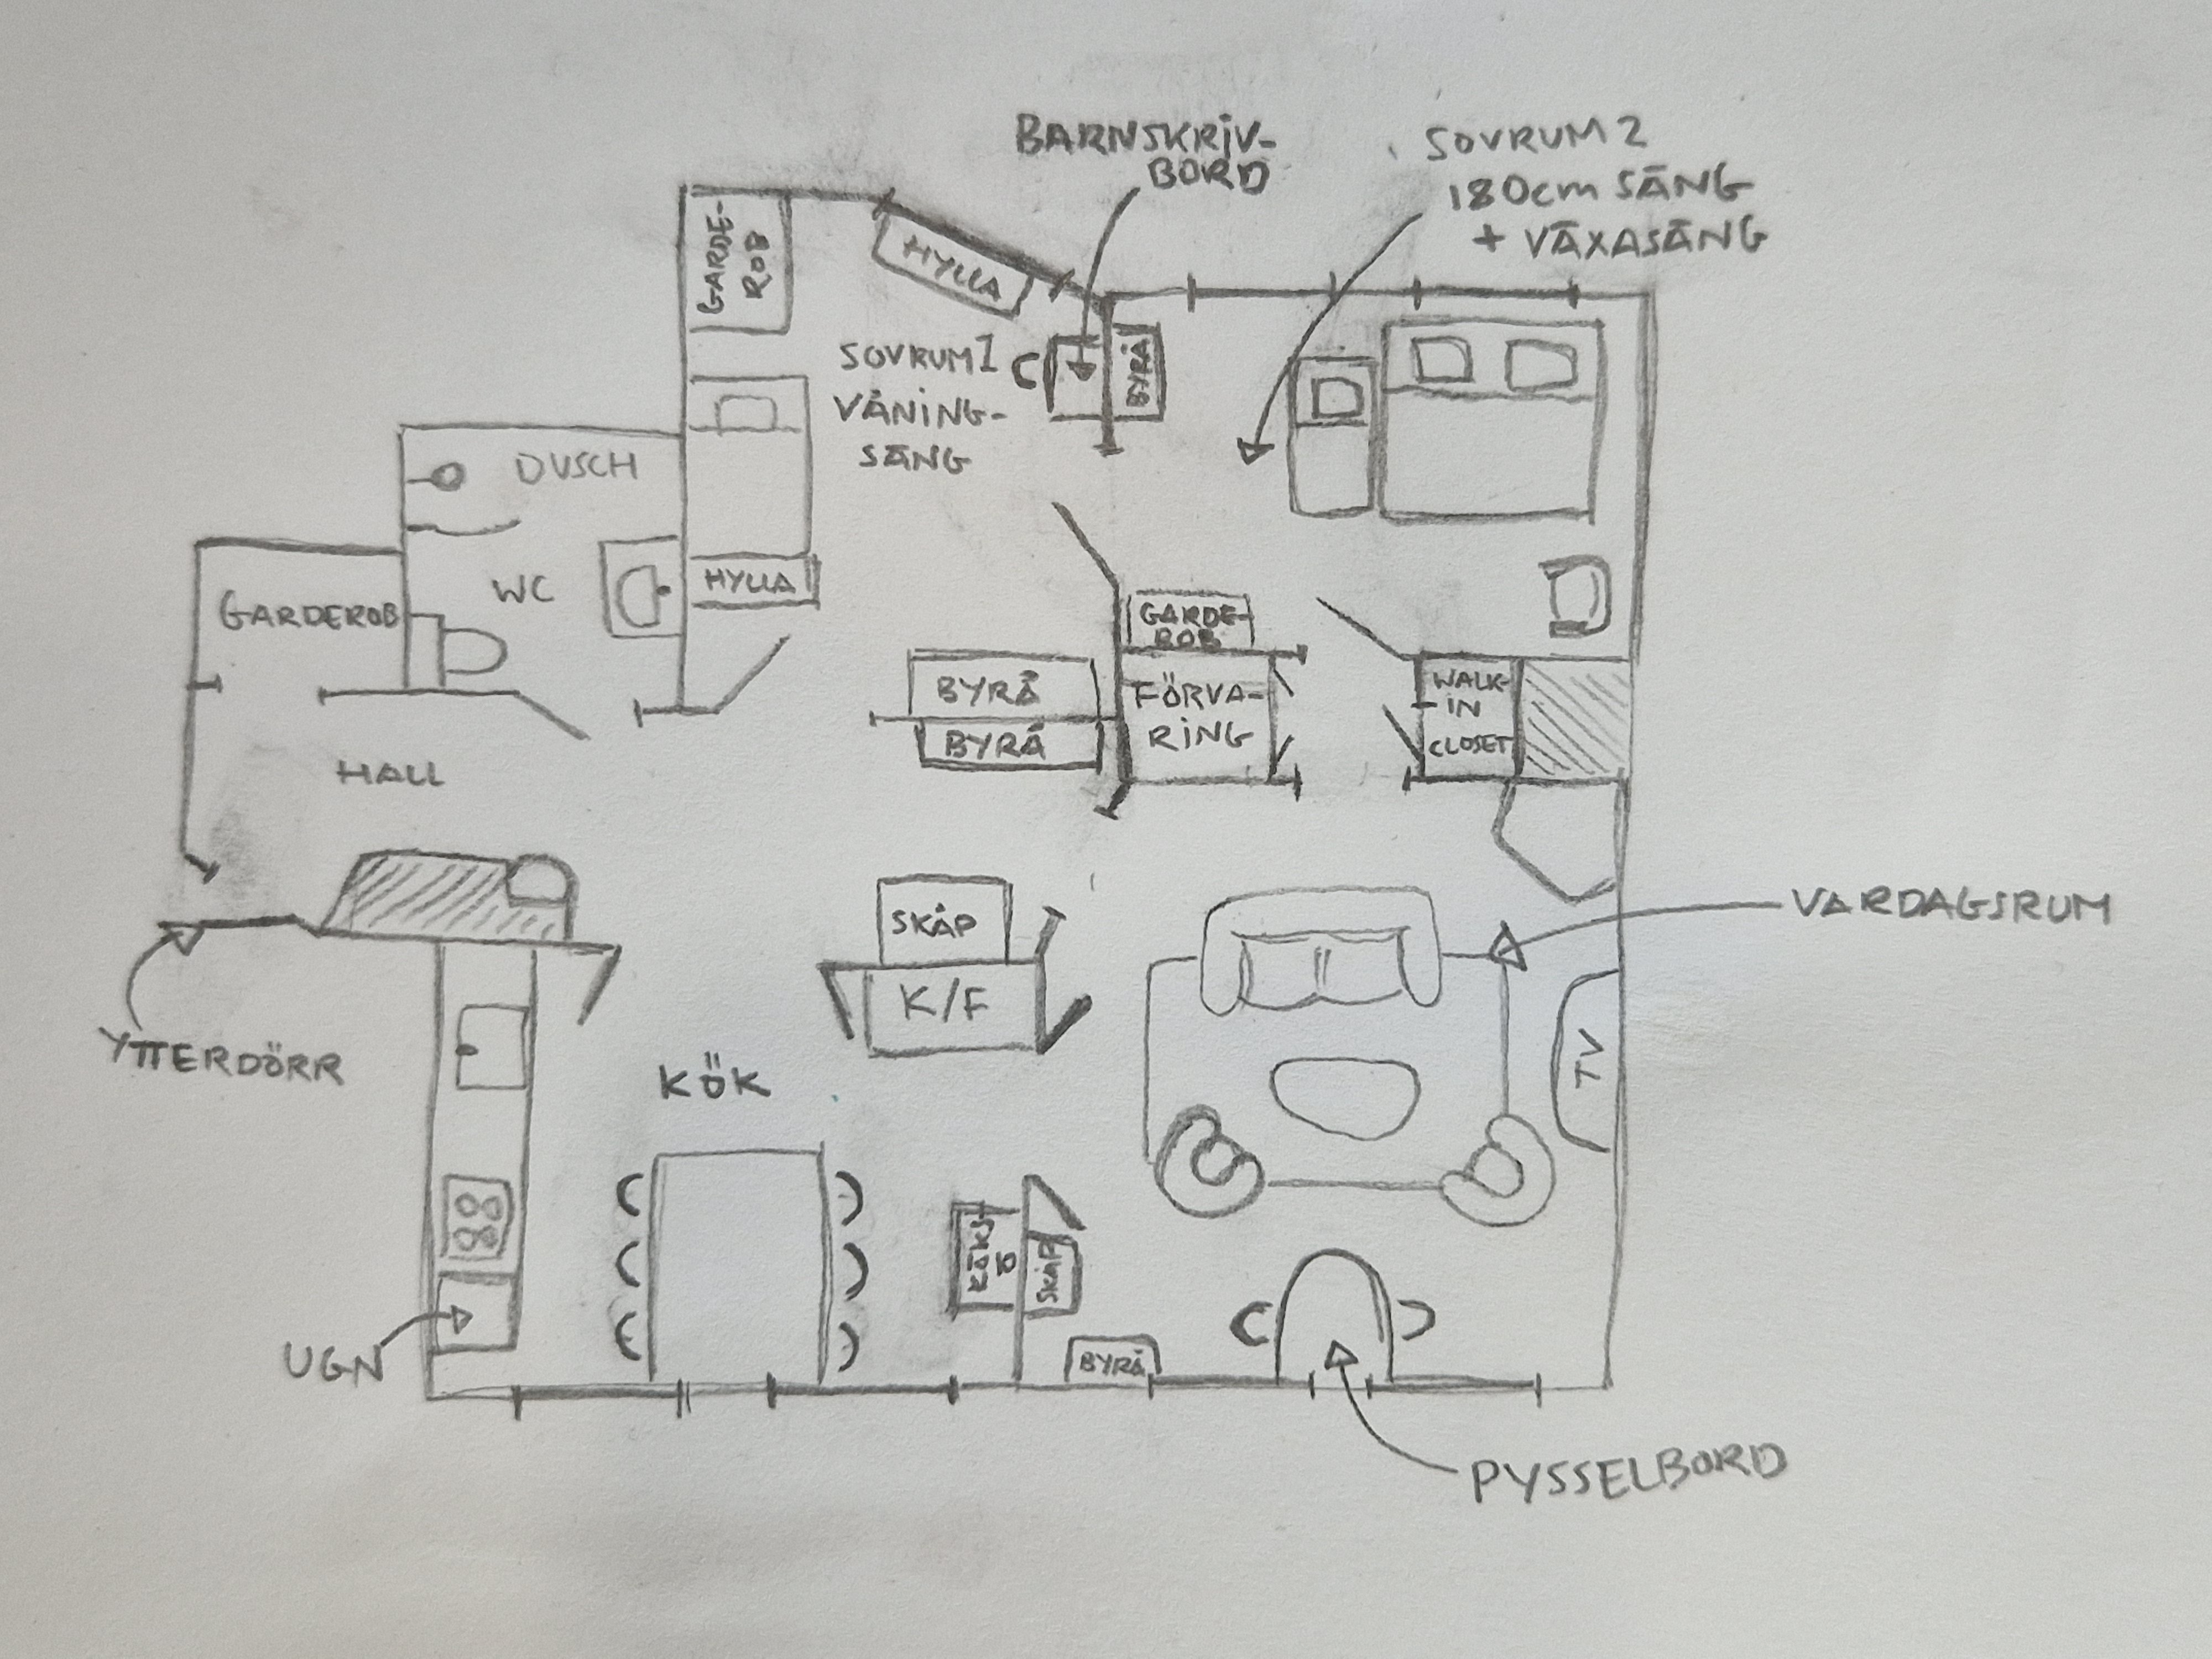 BARNSKRIV-
BORD
SOVRUM 2
180cm SÄNG
+ VÄXASÄNG
GARDE-
ROB
HYLLA
SOVRUM 1
VÅNING-
SÄNG
BYRÅ
DUSCH
WC
HYLLA
GARDEROB
GARDE-
ROB
BYRÅ
BYRÅ
FÖRVA-
RING
WALK-
IN
CLOSET
HALL
SKÅP
K/F
VARDAGSRUM
YTTERDÖRR
KÖK
TV
KÖKS
Ö
SKÅP
UGN
BYRÅ
PYSSELBORD